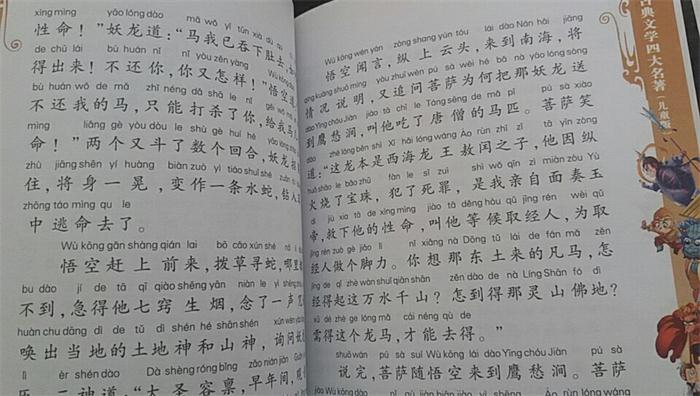 xìng mìng yāo lóng dào mǎ wǒ yǐ tūn xià dù
性命！”妖龙道：“马我已吞下肚去，
de chū lái bù huán nǐ nǐ yòu zěn yàng Wù kōng
得出来！不还你，你又怎样！”悟空道
bù huán wǒ de mǎ zhǐ néng dǎ shā le nǐ gěi wǒ mǎ
不还我的马，只能打杀了你，给我马儿
mìng liǎng gè yòu dòu le shù gè huí hé yāo lóng
命！”两个又斗了数个回合，妖龙
zhù jiāng shēn yí huàng biàn zuò yì tiáo shuǐ shé zuān rù
住，将身一晃，变作一条水蛇，钻入
zhōng táo mìng qu le
中逃命去了。
Wù kōng gǎn shàng qián lai bō cǎo xún shé nǎ lǐ
悟空赶上前来，拨草寻蛇，哪里
bu dào jí de tā qī qiào shēng yān niàn le yì shēng
不到，急得他七窍生烟，念了一声
huàn chu dāng dì de tǔ dì shén hé shān shén xún wèn yāo
唤出当地的土地神和山神，询问妖
lì èr shén dào Dà shèng róng bǐng zǎo nián jiān Guān
历。二神道：“大圣容禀，早年间，观
Wù kōng wén yán zòng shang yún tóu lái dào Nán hǎi jiāng
悟空闻言，纵上云头，来到南海，将
qíng kuàng shuō míng yòu zhuī wèn pú sà wèi hé bǎ nà yāo lóng sòng
情况说明，又追问菩萨为何把那妖龙送
dào Yīng chóu Jiàn jiào tā chī le Táng sēng de mǎ pǐ pú sà xiào
到鹰愁涧，叫他吃了唐僧的马匹。菩萨笑
dào zhè lóng běn shì Xī hǎi lóng wáng Áo rùn zhī zǐ tā yīn zòng
道：“这龙本是西海龙王敖闰之子，他因纵
huǒ shāo le bǎo zhū fàn le sǐ zuì shì wǒ qīn zì miàn zòu Yù
火烧了宝珠，犯了死罪，是我亲自面奏玉
dì jiù xià tā de xìng mìng jiào tā děng hòu qǔ jīng rén wèi qǔ
帝，救下他的性命，叫他等候取经人，为取
jīng rén zuò gè jiǎo lì nǐ xiǎng nà Dōng tǔ lái de fán mǎ zěn
经人做个脚力。你想那东土来的凡马，怎
jīng de qǐ zhè wàn shuǐ qiān shān zěn dào de nà Líng Shān fó dì
经得起这万水千山？怎到得那灵山佛地？
xū děi zhè ge lóng mǎ cái néng qù de
需得这个龙马，才能去得。”
shuō wán pú sà suí Wù kōng lái dào Yīng chóu Jiàn pú sà
说完，菩萨随悟空来到鹰愁涧。菩萨
古典文学四大名著（儿童版）